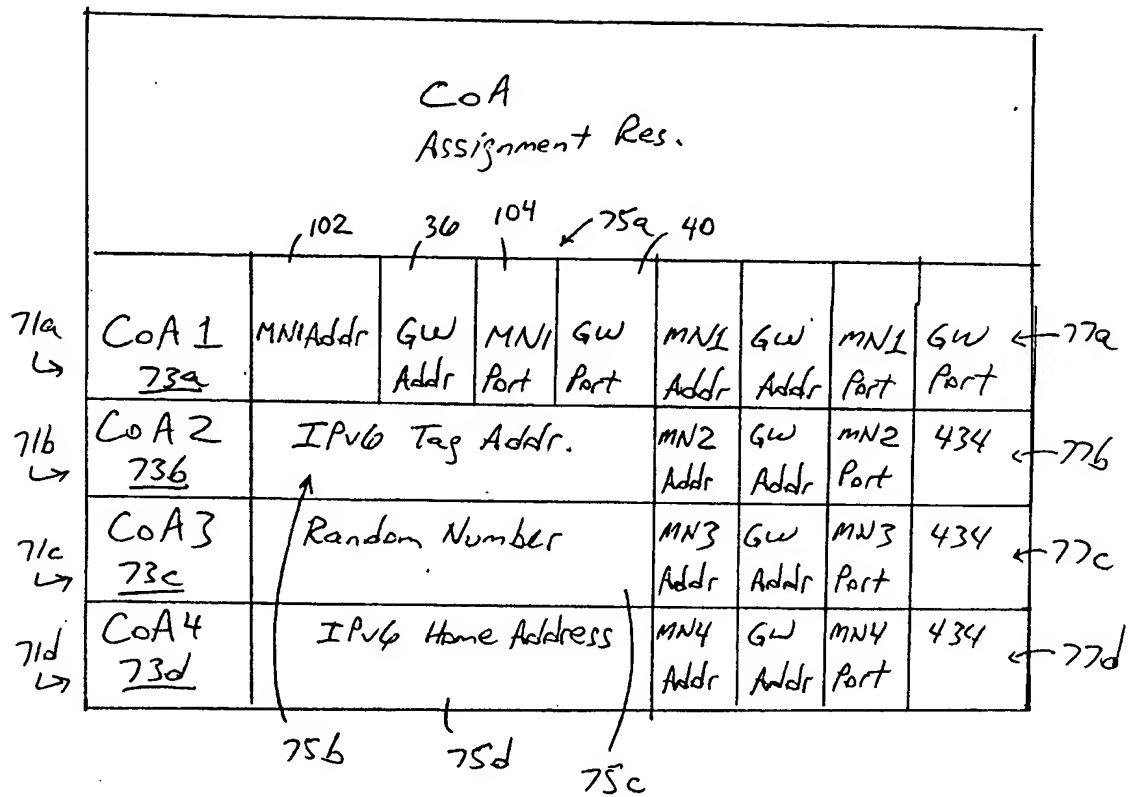 CoA
Assignment Res.
102 36 104 75a 40
71a CoA 1 MN1Addr GW Addr MN1 Port GW Port MN1 Addr GW Addr MN1 Port GW Port 77a
73a
71b CoA 2 IPv6 Tag Addr. MN2 Addr GW Addr MN2 Port 434 77b
73b
71c CoA3 Random Number MN3 Addr GW Addr MN3 Port 434 77c
73c
71d CoA4 IPv6 Home Address MN4 Addr GW Addr MN4 Port 434 77d
73d
75b 75d 75c